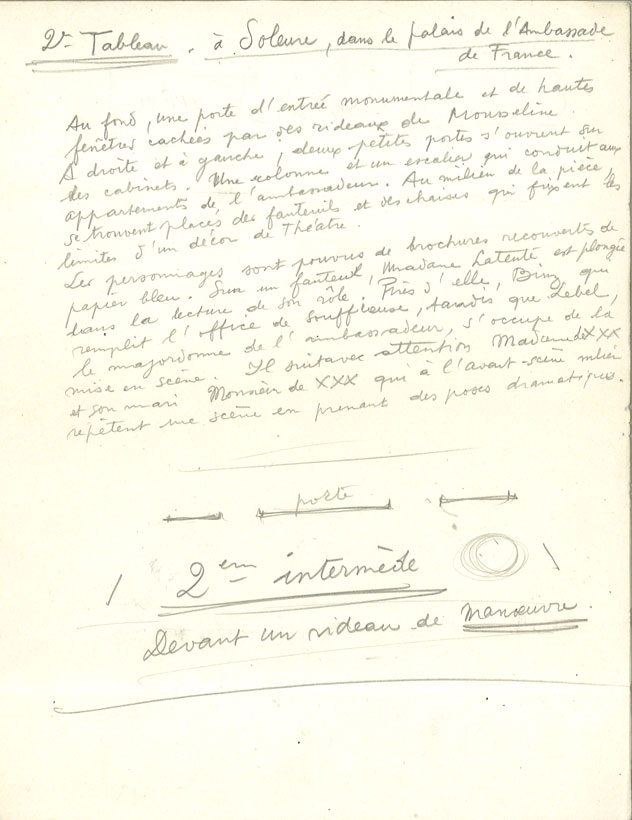 2e Tableau. à Soleure, dans le palais de l'Ambassade
de France.
Au fond, une porte d'entrée monumentale et de hautes
fenêtres cachées par des rideaux de Mousseline.
A droite et à gauche, deux petites portes s'ouvrent sur
des cabinets. Une colonne et un escalier qui conduit aux
appartements de l'ambassadeur. Au milieu de la pièce,
se trouvent placés des fauteuils et des chaises qui fixent les
limites d'un décor de Théatre.
Les personnages sont pourvus de brochures recouvertes de
papier bleu. Sur un fauteuil, Madame Latenté est plongée
dans la lecture de son rôle. Près d'elle, Binz qui
remplit l'office de souffleuse, tandis que Lebel,
le majordome de l'ambassadeur, s'occupe de la
mise en scène. Il suit avec attention Madame de XXX
et son mari Monsieur de XXX qui à l'avant-scène milieu
répètent une scène en prenant des poses dramatiques.
porte
2em intermède
Devant un rideau de Manœuvre.